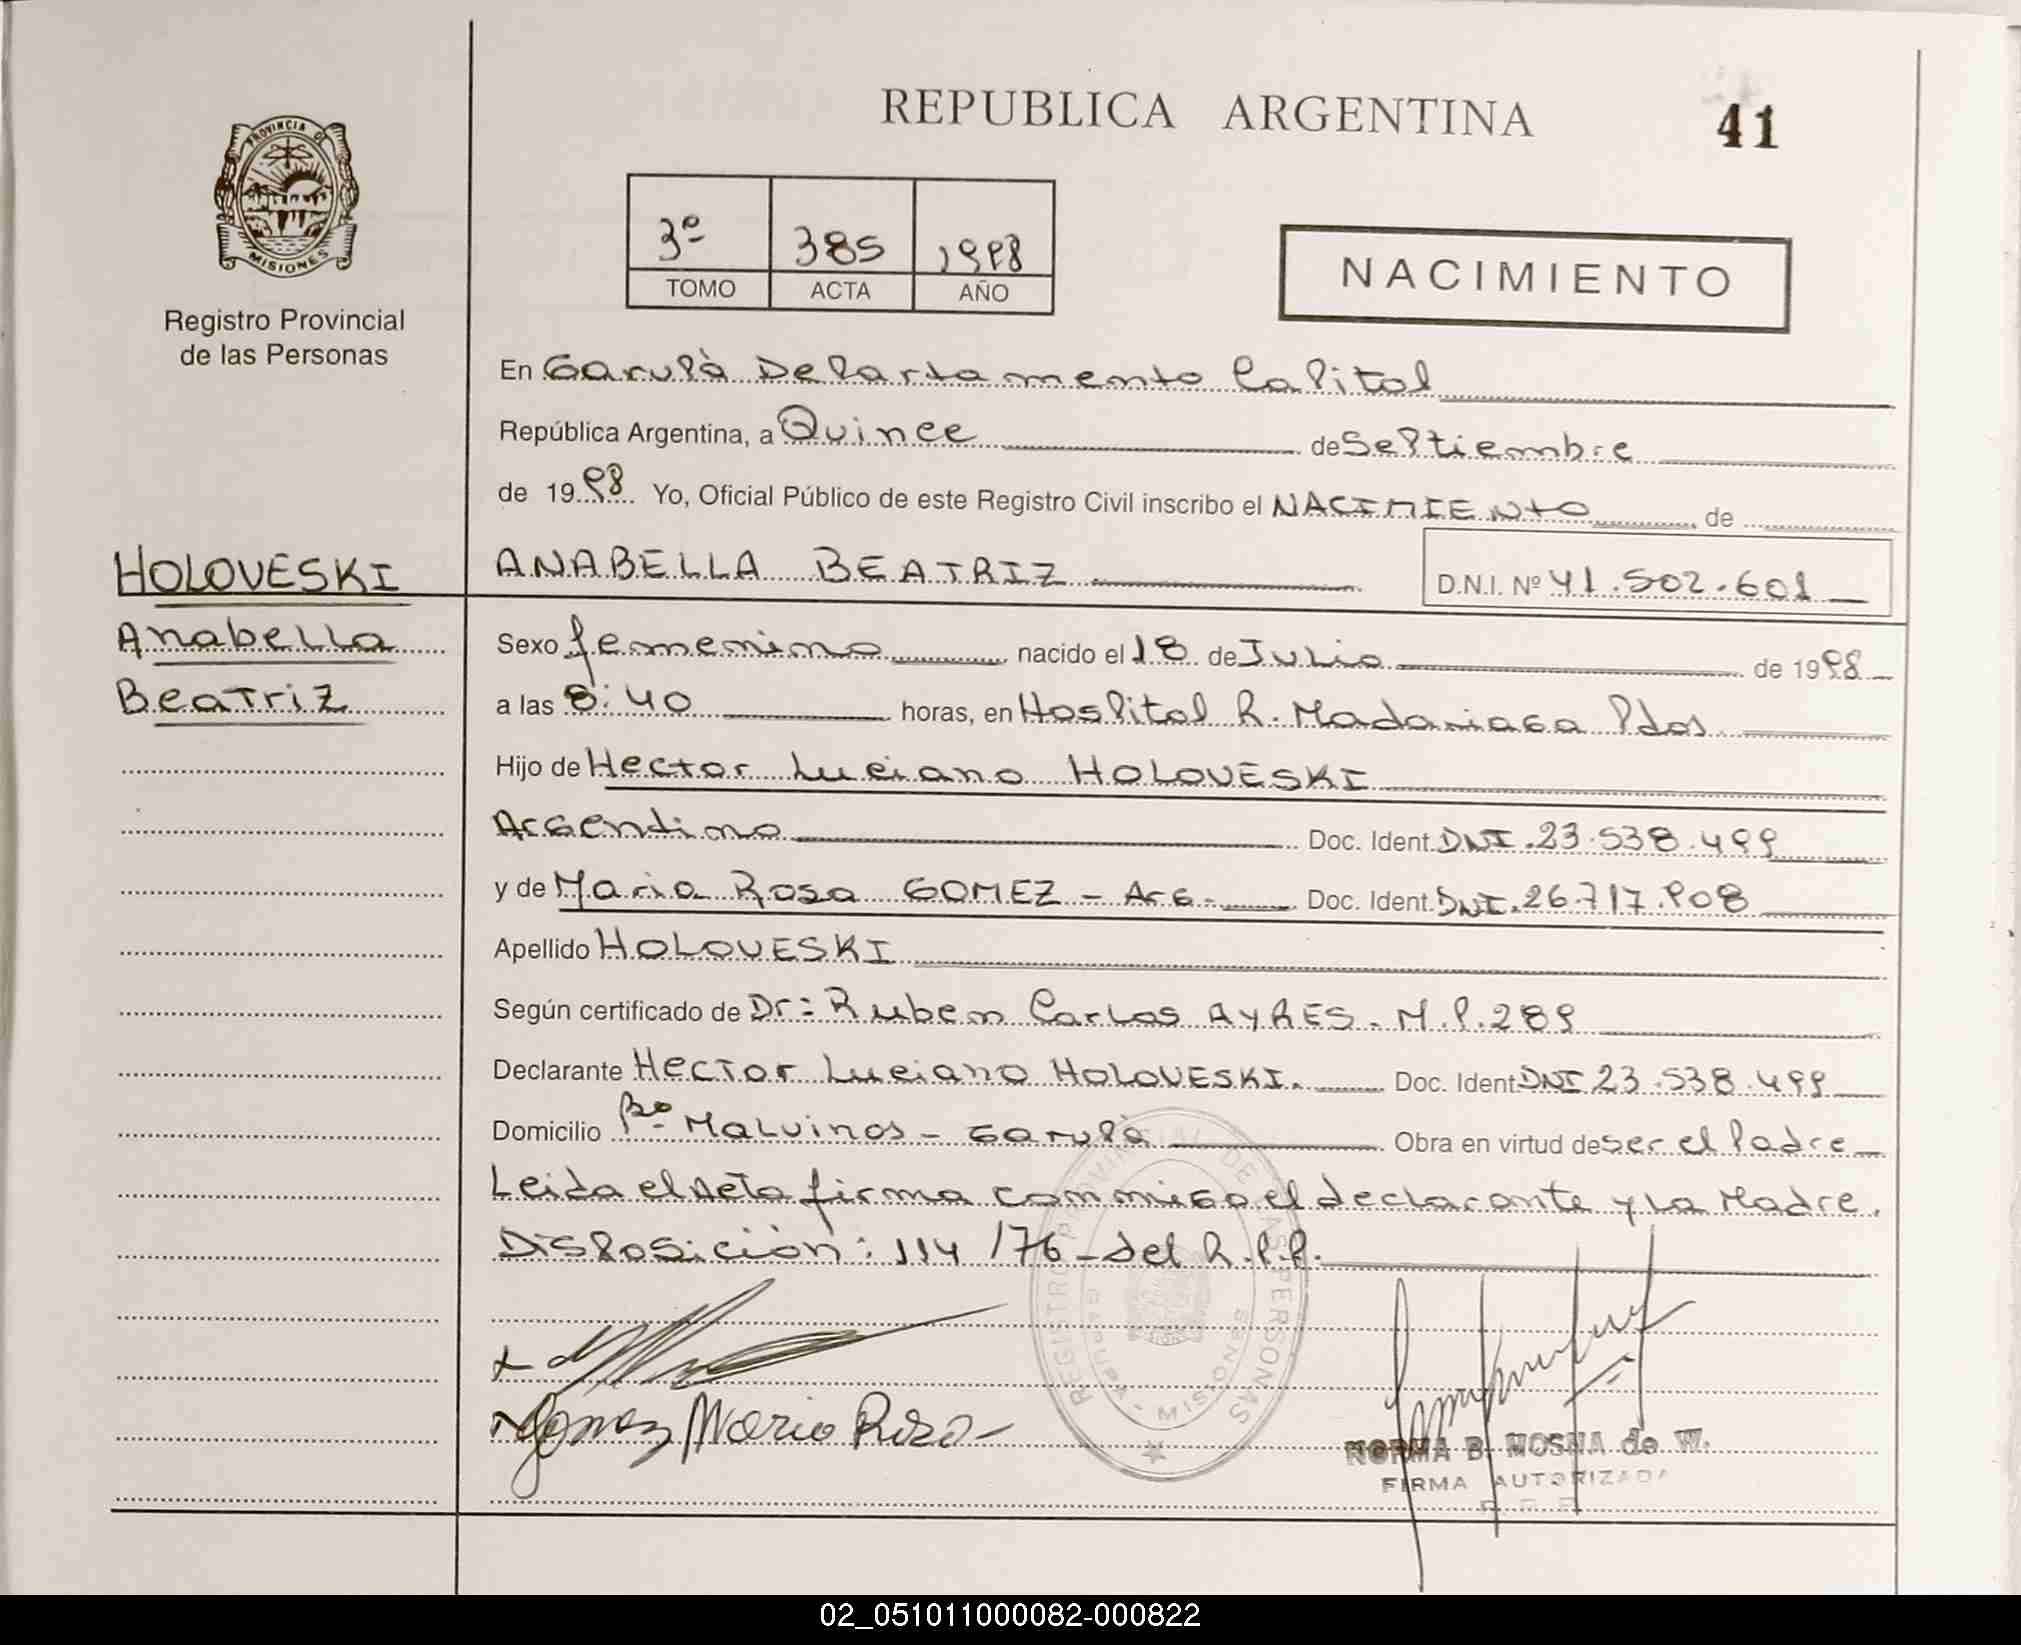 REPUBLICA ARGENTINA
41
PROVINCIA DE
MISIONES
Registro Provincial
de las Personas
3º 385 1998
TOMO ACTA AÑO
NACIMIENTO
En Garupà Departamento Capital
República Argentina, a Quince de Septiembre
de 1998 Yo, Oficial Público de este Registro Civil inscribo el NACIMIENTO de
HOLOVESKI
Anabella
Beatriz
ANABELLA BEATRIZ D.N.I. Nº 41.502.601
Sexo femenino nacido el 18 de Julio de 1998
a las 8:40 horas, en Hospital R. Madariaga Pdas.
Hijo de Hector Luciano HOLOVESKI
Argentino Doc. Ident. DNI.23.538.499
y de Maria Rosa GOMEZ - Arg. Doc. Ident. DNI.26.717.908
Apellido HOLOVESKI
Según certificado de Dr: Ruben Carlos AYRES. M.P.289
Declarante Hector Luciano HOLOVESKI. Doc. Ident. DNI 23.538.499
Domicilio Bº Malvinas - Garupà Obra en virtud de ser el Padre
Leida el Acta firma conmigo el declarante y la Madre.
Disposición: 114/76 - del R.P.P.
REGISTRO PROVINCIAL DE LAS PERSONAS
GARUPA - MISIONES
Gomez Maria Rosa
NORMA B. MOSNA de W.
FIRMA AUTORIZADA
02_051011000082-000822